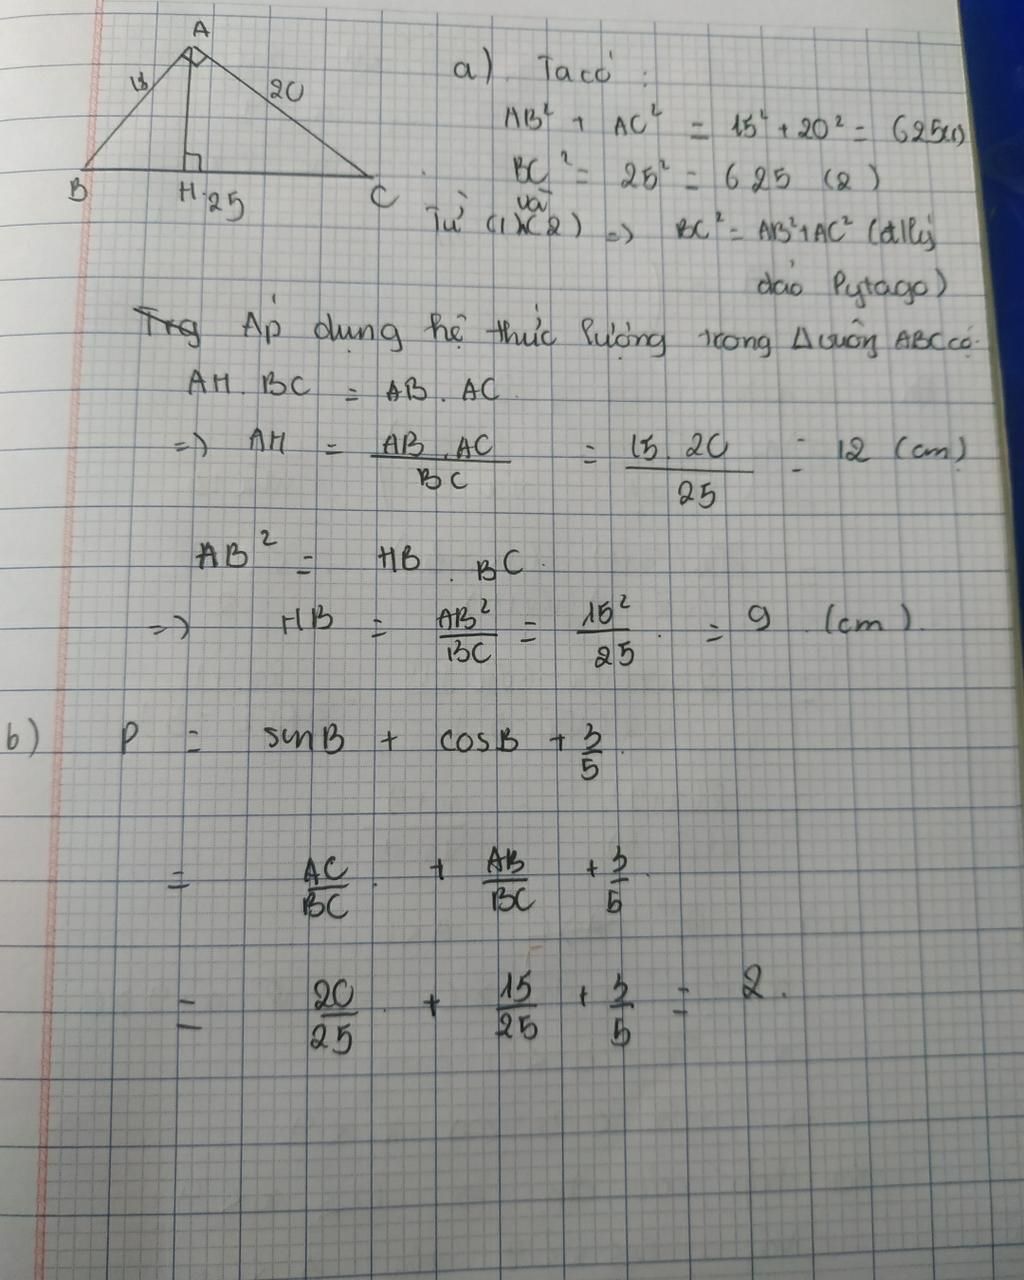 A
15
20
B
H
25
C
a) Ta có :
AB² + AC² = 15² + 20² = 625 (1)
BC² = 25² = 625 (2)
Từ (1) và (2) => BC² = AB² + AC² (đ/lý
đảo Pytago)
Áp dụng hệ thức lượng trong Δ vuông ABC có:
AH . BC = AB . AC
=> AH = AB . AC / BC = 15 . 20 / 25 = 12 (cm)
AB² = HB . BC
=> HB = AB² / BC = 15² / 25 = 9 (cm).
b) P = sinB + cosB + 3/5
= AC/BC + AB/BC + 3/5
= 20/25 + 15/25 + 3/5 = 2.